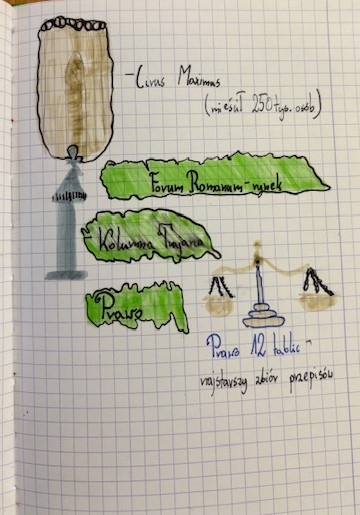 - Circus Maximus
(mieścił 250 tys. osób)
Forum Romanum - rynek
- Kolumna Trajana
Prawo
Prawo 12 tablic -
najstarszy zbiór przepisów